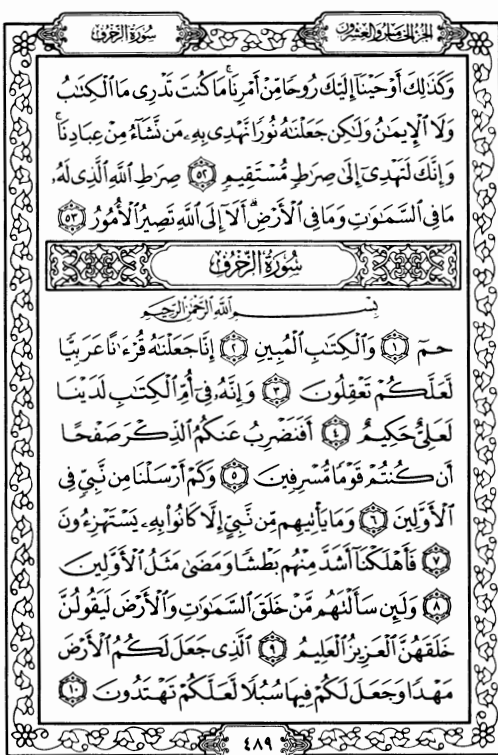 سُورَةُ الزُّخْرُفِ
الجُزْءُ الخَامِسُ وَالعِشْرُونَ
وَكَذَٰلِكَ أَوْحَيْنَآ إِلَيْكَ رُوحًا مِّنْ أَمْرِنَا ۚ مَا كُنتَ تَدْرِى مَا ٱلْكِتَٰبُ
وَلَا ٱلْإِيمَٰنُ وَلَٰكِن جَعَلْنَٰهُ نُورًا نَّهْدِى بِهِۦ مَن نَّشَآءُ مِنْ عِبَادِنَا ۚ
وَإِنَّكَ لَتَهْدِىٓ إِلَىٰ صِرَٰطٍ مُّسْتَقِيمٍ ۝٥٢ صِرَٰطِ ٱللَّهِ ٱلَّذِى لَهُۥ
مَا فِى ٱلسَّمَٰوَٰتِ وَمَا فِى ٱلْأَرْضِ ۗ أَلَآ إِلَى ٱللَّهِ تَصِيرُ ٱلْأُمُورُ ۝٥٣
سُورَةُ الزُّخْرُفِ
بِسْمِ ٱللَّهِ ٱلرَّحْمَٰنِ ٱلرَّحِيمِ
حمٓ ۝١ وَٱلْكِتَٰبِ ٱلْمُبِينِ ۝٢ إِنَّا جَعَلْنَٰهُ قُرْءَٰنًا عَرَبِيًّا
لَّعَلَّكُمْ تَعْقِلُونَ ۝٣ وَإِنَّهُۥ فِىٓ أُمِّ ٱلْكِتَٰبِ لَدَيْنَا
لَعَلِىٌّ حَكِيمٌ ۝٤ أَفَنَضْرِبُ عَنكُمُ ٱلذِّكْرَ صَفْحًا
أَن كُنتُمْ قَوْمًا مُّسْرِفِينَ ۝٥ وَكَمْ أَرْسَلْنَا مِن نَّبِىٍّ فِى
ٱلْأَوَّلِينَ ۝٦ وَمَا يَأْتِيهِم مِّن نَّبِىٍّ إِلَّا كَانُوا۟ بِهِۦ يَسْتَهْزِءُونَ
۝٧ فَأَهْلَكْنَآ أَشَدَّ مِنْهُم بَطْشًا وَمَضَىٰ مَثَلُ ٱلْأَوَّلِينَ
۝٨ وَلَئِن سَأَلْتَهُم مَّنْ خَلَقَ ٱلسَّمَٰوَٰتِ وَٱلْأَرْضَ لَيَقُولُنَّ
خَلَقَهُنَّ ٱلْعَزِيزُ ٱلْعَلِيمُ ۝٩ ٱلَّذِى جَعَلَ لَكُمُ ٱلْأَرْضَ
مَهْدًا وَجَعَلَ لَكُمْ فِيهَا سُبُلًا لَّعَلَّكُمْ تَهْتَدُونَ ۝١٠
٤٨٩